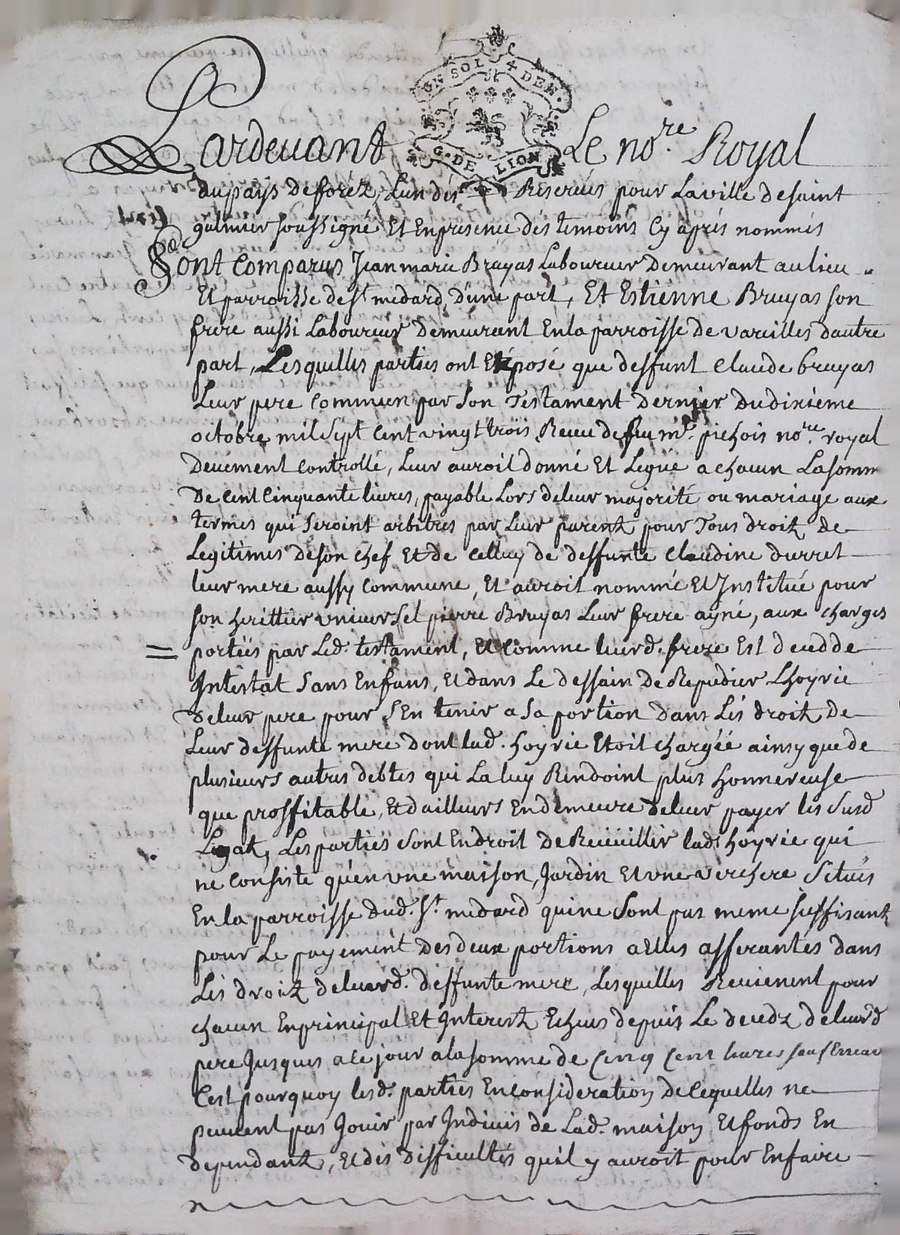 UN SOL 4 DEN.
G. DE LION
Pardevant Le no.re Royal
du pays de foréz, L'un des Reservés pour La ville de saint
galmier soussigné Et En presence des temoins Cy aprés nommés
Sont Comparus Jean marie Bruyas Laboureur Demeurant au lieu
Et parroisse de st medard, d'une part, Et Estienne Bruyas son
frere aussi Laboureur Demeurant En la parroisse de vareilles d'autre
part, Lesquelles parties ont Exposé que deffunt claude bruyas
Leur pere Commun par son Testament Dernier du dixieme
octobre mil sept Cent vingt trois, Receu de feu m.e pichois no.re royal
Deuement Controllé, Leur auroit donné Et Legué a chacun La somm
De Cent Cinquante livres, payable Lors de leur majorité ou mariage aux
termes qui seroint arbitrés par Leur parentz pour Tous droitz de
Legitimes de son chef Et de Celluy de deffunte Claudine Durret
leur mere aussy Commune, Et auroit nommé Et Institué pour
son herittier universel pierre Bruyas Leur frere ayné, aux charges
portées par Led. testament, Et Comme leurd. frere Est decedde
Intestat Sans Enfans, Et dans Le dessain de Repudier L'hoyrie
de leur pere pour s'En tenir a sa portion dans Les droitz de
Leur deffunte mere dont lad. hoyrie Etoit chargée ainsy que de
plusieurs autres debtes qui La luy Rendoint plus honnereuse
que proffitable, Et d'ailleurs En demeure de leur payer les susd
Legat, Les parties sont En droit de Receuillir lad. hoyrie qui
ne Consiste qu'en une maison, Jardin Et une verchere Situés
En la parroisse dud. St. medard qui ne sont pas meme suffisant
pour Le payement Des deux portions a Elles afferantes dans
Les droitz de leurd. deffunte mere, Lesquelles Revienent pour
chacun En principal Et Interestz Echus depuis Le decedz de leurd
pere Jusques a ce jour a la somme de Cinq Cent livres sauf Erreur
C'est pourquoy lesd. parties En Consideration de Cequelles ne
peuvent pas Jouir par Indivis de Lad. maison Et fonds En
dependantz, Et des difficultés quil y auroit pour En faire